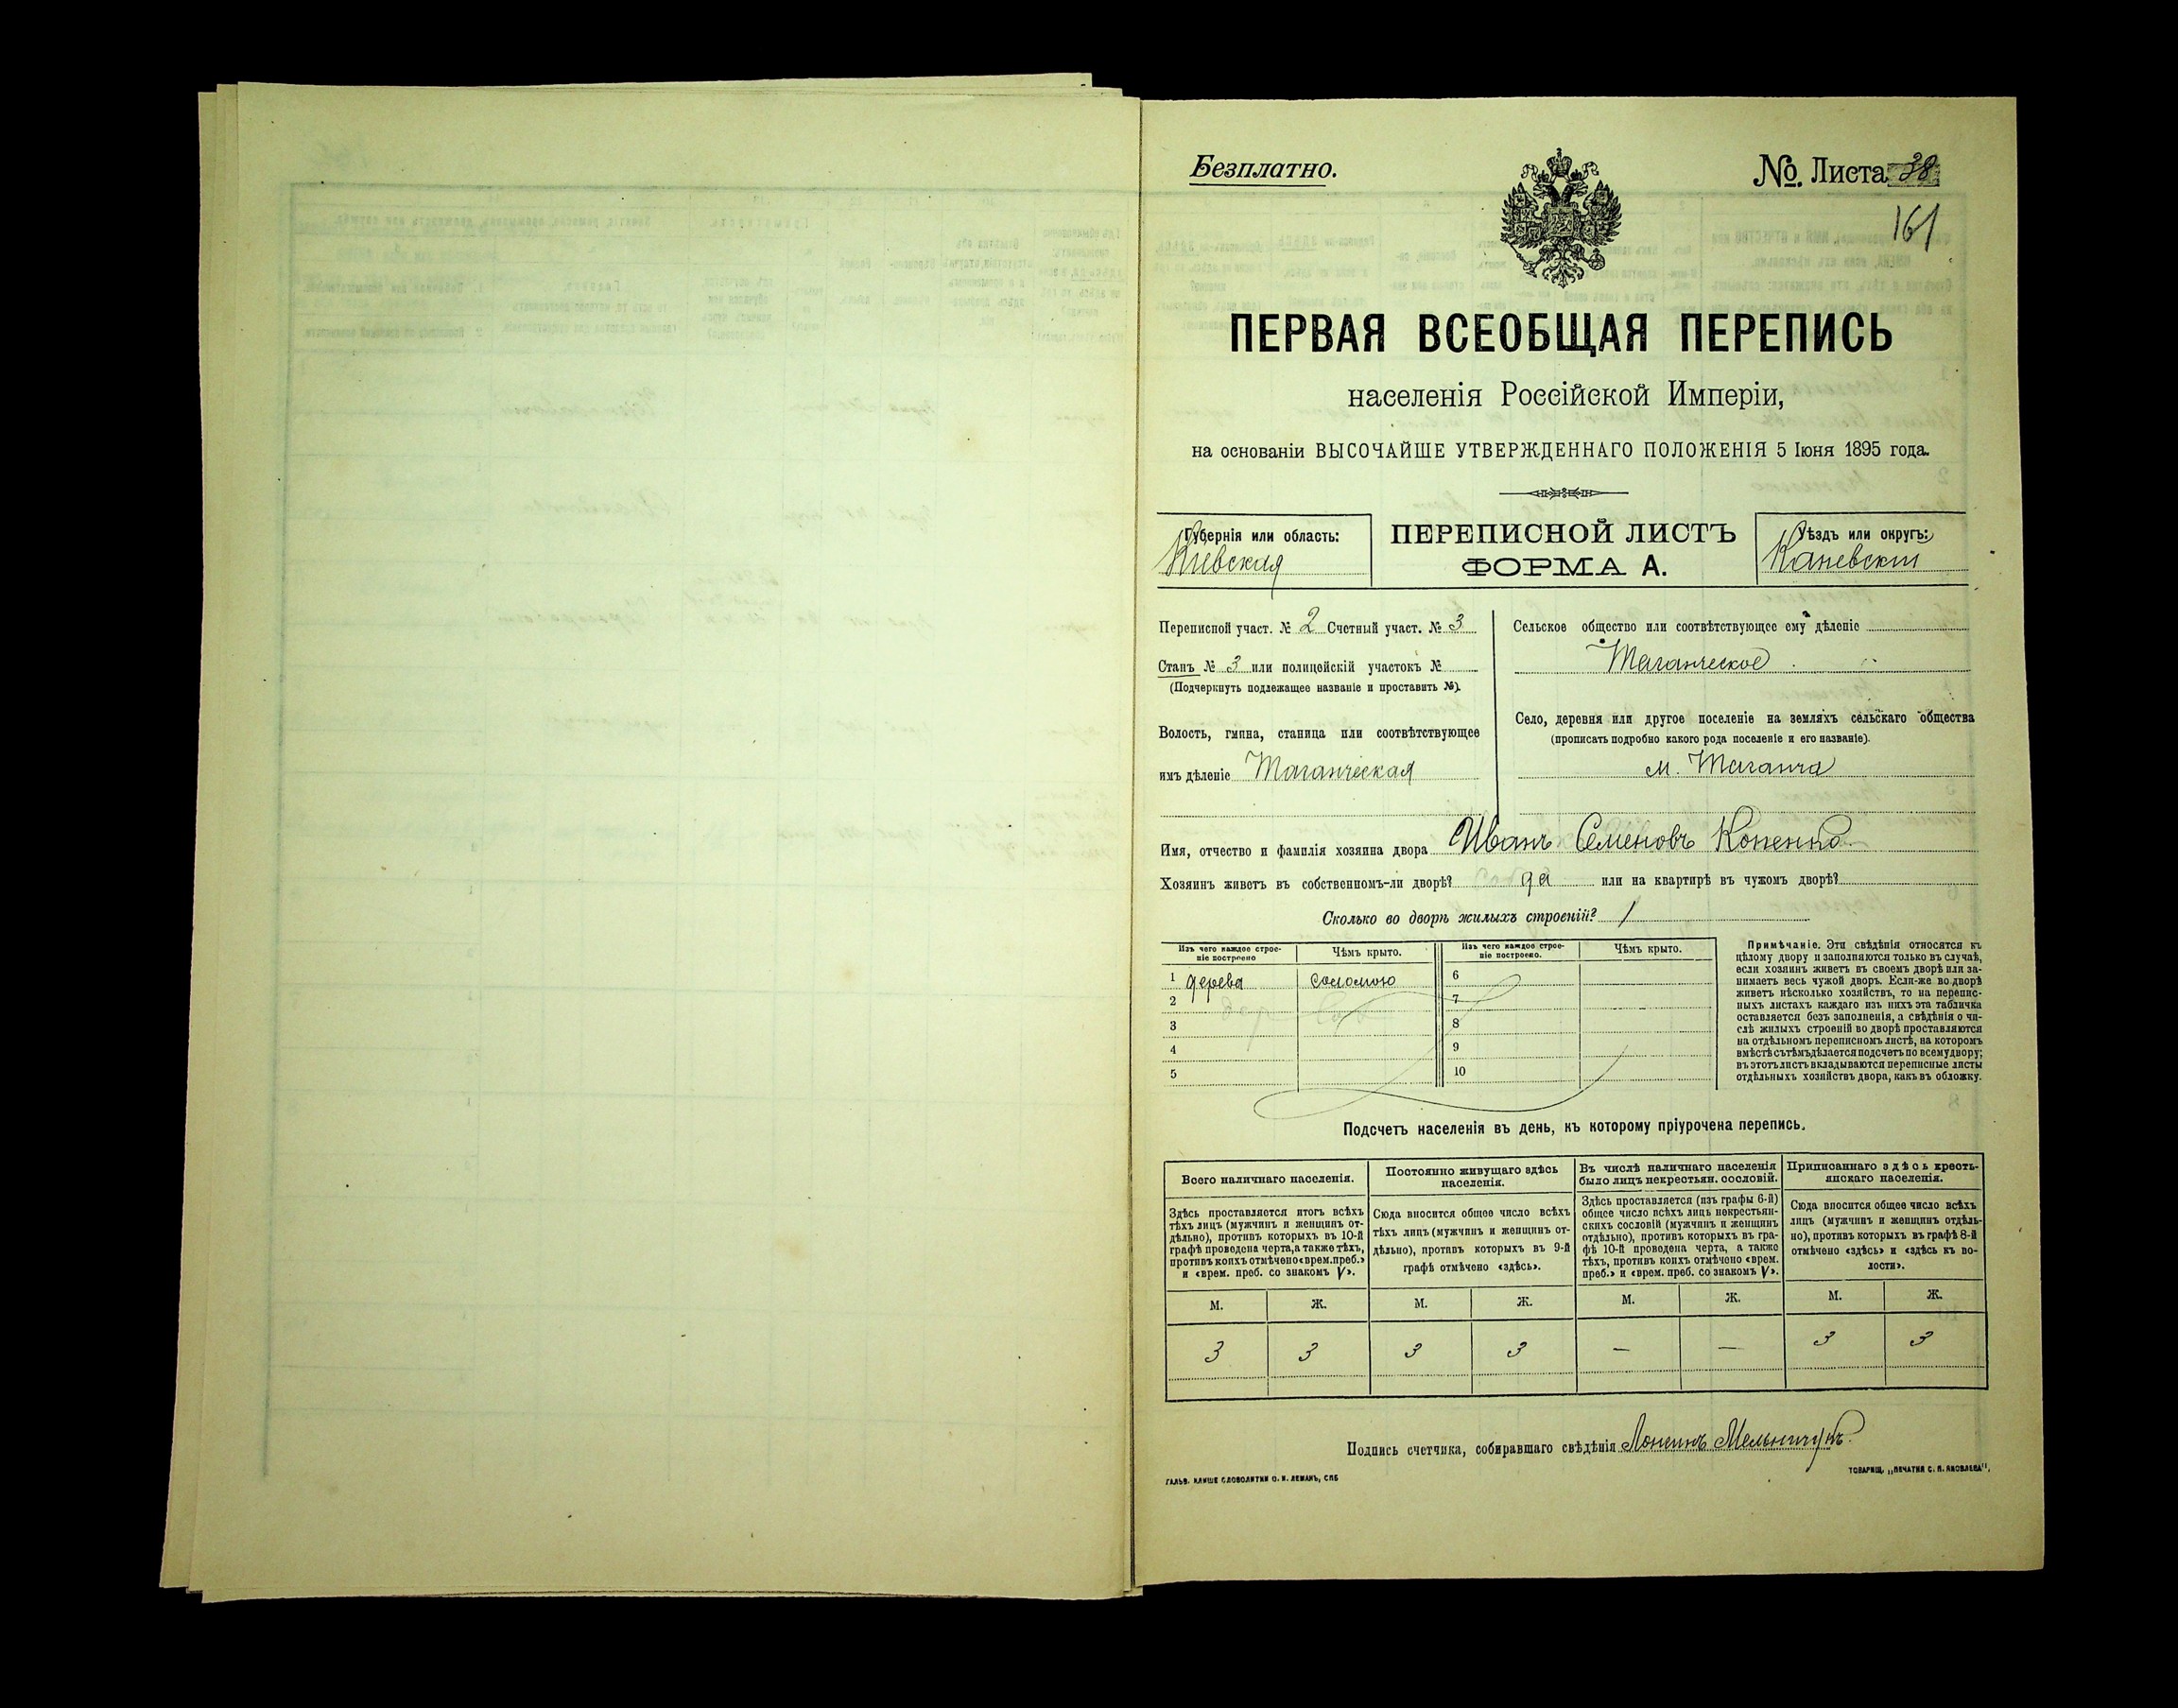 Безплатно.
№. Листа 38
161
ПЕРВАЯ ВСЕОБЩАЯ ПЕРЕПИСЬ
населенія Россійской Имперіи,
на основаніи ВЫСОЧАЙШЕ УТВЕРЖДЕННАГО ПОЛОЖЕНІЯ 5 Іюня 1895 года.
Губернія или область:
Кіевская
ПЕРЕПИСНОЙ ЛИСТЪ
ФОРМА А.
Уѣздъ или округъ:
Каневскій
Переписной участ. № 2 Счетный участ. № 3
Станъ № 3 или полицейскій участокъ №
(Подчеркнуть подлежащее названіе и проставить №).
Волость, гмина, станица или соотвѣтствующее
имъ дѣленіе Таганческая
Сельское общество или соотвѣтствующее ему дѣленіе
Таганческое
Село, деревня или другое поселеніе на земляхъ сельскаго общества
(прописать подробно какого рода поселеніе и его названіе).
м. Таганча
Имя, отчество и фамилія хозяина двора Иванъ Семеновъ Копенко
Хозяинъ живетъ въ собственномъ-ли дворѣ? да или на квартирѣ въ чужомъ дворѣ?
Сколько во дворѣ жилыхъ строеній? 1
Изъ чего каждое строе-
ніе построено
Чѣмъ крыто.
Изъ чего каждое строе-
ніе построено.
Чѣмъ крыто.
1 дерева соломою 6
2 7
3 8
4 9
5 10
Примѣчаніе. Эти свѣдѣнія относятся къ
цѣлому двору и заполняются только въ случаѣ,
если хозяинъ живетъ въ своемъ дворѣ или за-
нимаетъ весь чужой дворъ. Если-же во дворѣ
живетъ нѣсколько хозяйствъ, то на перепис-
ныхъ листахъ каждаго изъ нихъ эта табличка
оставляется безъ заполненія, а свѣдѣнія о чи-
слѣ жилыхъ строеній во дворѣ проставляются
на отдѣльномъ переписномъ листѣ, на которомъ
вмѣстѣ съ тѣмъ дѣлается подсчетъ по всему двору;
въ этотъ листъ вкладываются переписные листы
отдѣльныхъ хозяйствъ двора, какъ въ обложку.
Подсчетъ населенія въ день, къ которому пріурочена перепись.
Всего наличнаго населенія.
Здѣсь проставляется итогъ всѣхъ
тѣхъ лицъ (мужчинъ и женщинъ от-
дѣльно), противъ которыхъ въ 10-й
графѣ проведена черта, а также тѣхъ,
противъ коихъ отмѣчено «врем. преб.»
и «врем. преб. со знакомъ V».
Постоянно живущаго здѣсь
населенія.
Сюда вносится общее число всѣхъ
тѣхъ лицъ (мужчинъ и женщинъ от-
дѣльно), противъ которыхъ въ 9-й
графѣ отмѣчено «здѣсь».
Въ числѣ наличнаго населенія
было лицъ некрестьян. сословій.
Здѣсь проставляется (изъ графы 6-й)
общее число всѣхъ лицъ некрестьян-
скихъ сословій (мужчинъ и женщинъ
отдѣльно), противъ которыхъ въ гра-
фѣ 10-й проведена черта, а также
тѣхъ, противъ коихъ отмѣчено «врем.
преб.» и «врем. преб. со знакомъ V».
Приписаннаго здѣсь кресть-
янскаго населенія.
Сюда вносится общее число всѣхъ
лицъ (мужчинъ и женщинъ отдѣль-
но), противъ которыхъ въ графѣ 8-й
отмѣчено «здѣсь» и «здѣсь къ во-
лости».
М. Ж. М. Ж. М. Ж. М. Ж.
3 3 3 3 — — 3 3
Подпись счетчика, собиравшаго свѣдѣнія Мельничукъ.
ГАЛЬВ. КЛИШЕ СЛОВОЛИТНИ О. И. ЛЕМАНЪ, СПБ
ТОВАРИЩ. „ПЕЧАТНЯ С. П. ЯКОВЛЕВА",